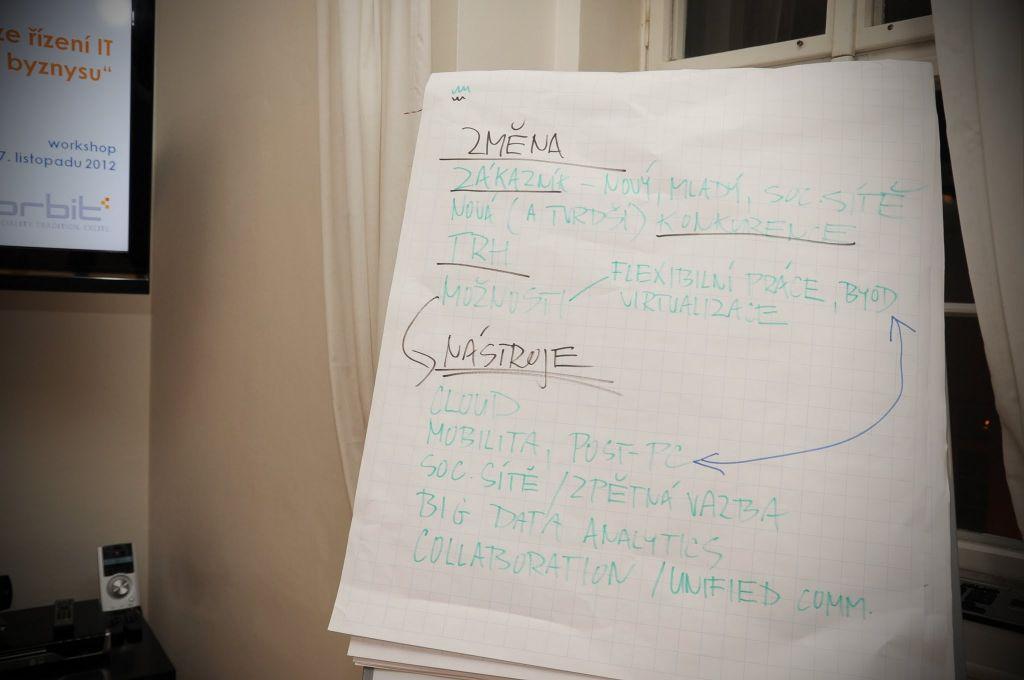 ze řízení IT
byznysu“
workshop
7. listopadu 2012
orbit
ZMĚNA
ZÁKAZNÍK – NOVÝ, MLADÝ, SOC. SÍTĚ
NOVÁ (A TVRDŠÍ) KONKURENCE
TRH
MOŽNOSTI
FLEXIBILNÍ PRÁCE, BYOD
VIRTUALIZACE
NÁSTROJE
CLOUD
MOBILITA, POST-PC
SOC. SÍTĚ / ZPĚTNÁ VAZBA
BIG DATA ANALYTICS
COLLABORATION / UNIFIED COMM.